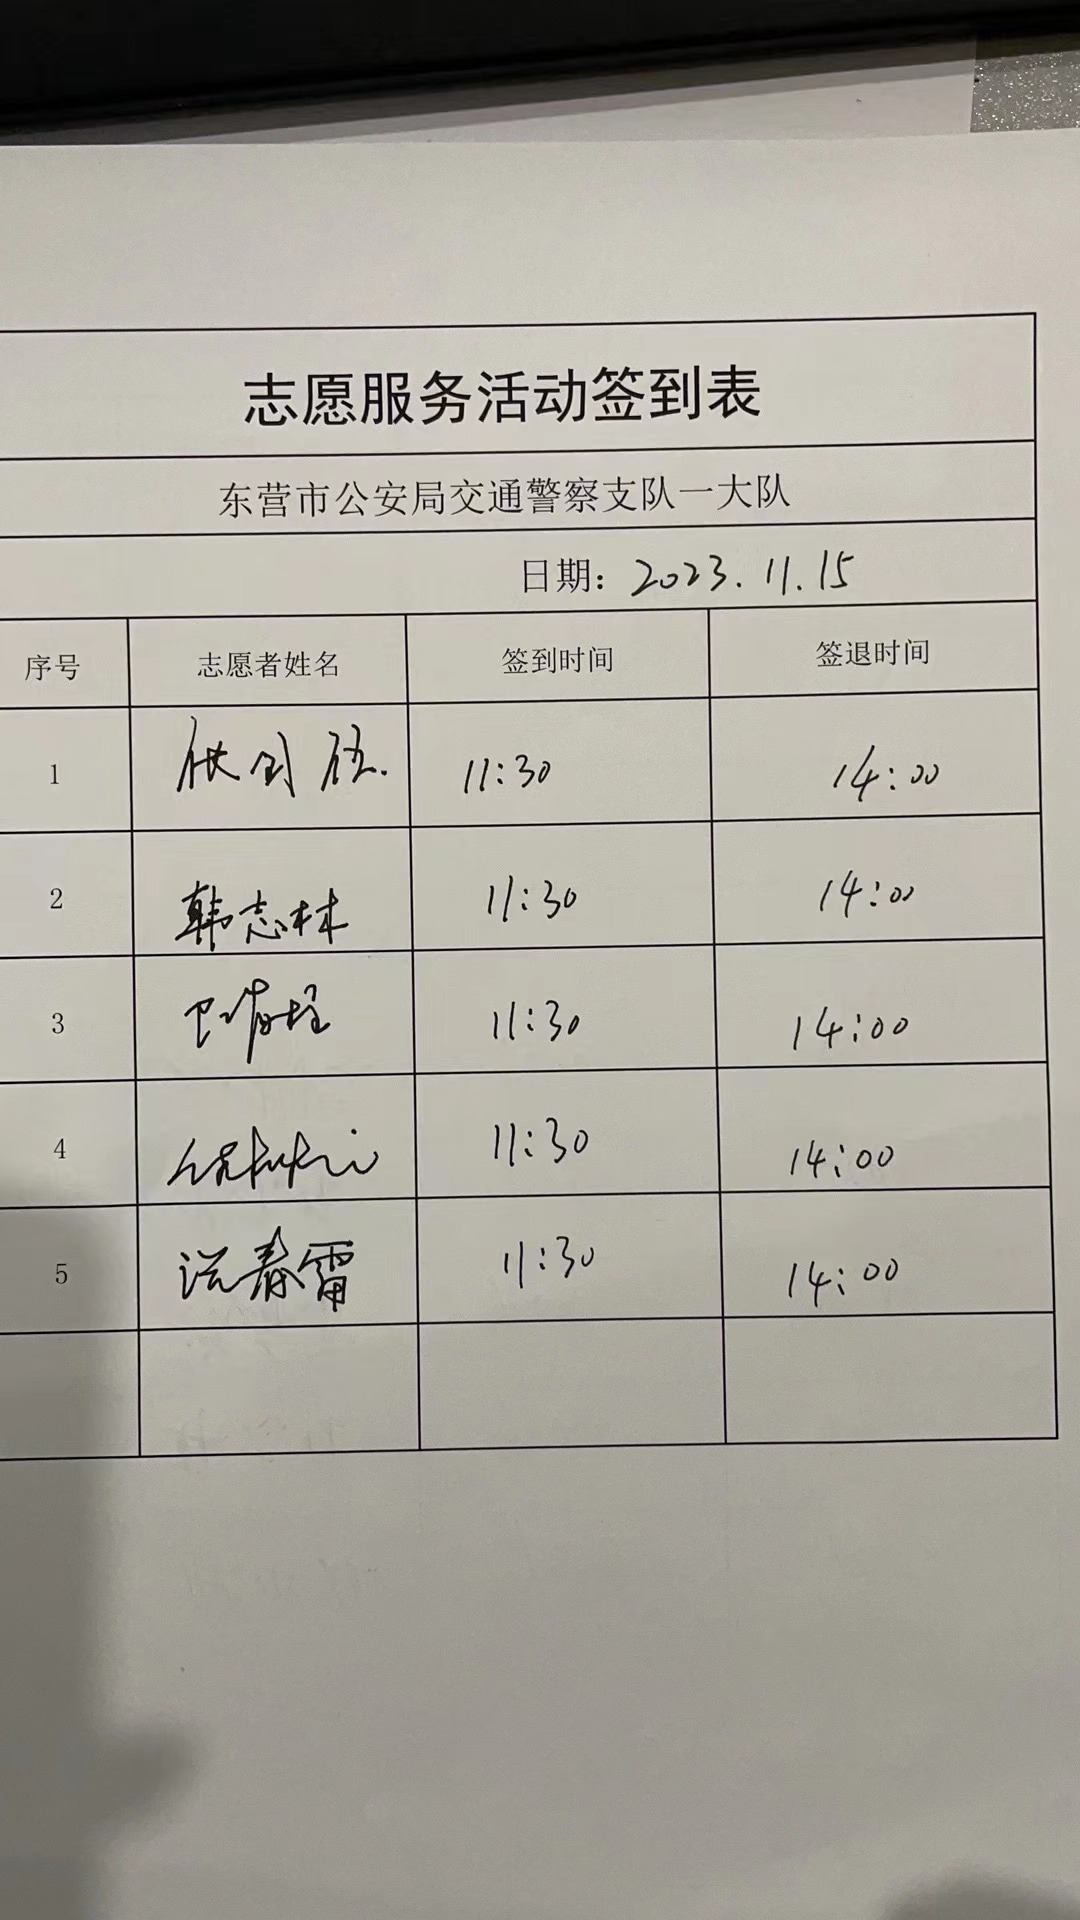 志愿服务活动签到表
东营市公安局交通警察支队一大队
日期：2023.11.15
序号 志愿者姓名 签到时间 签退时间
1 11:30 14:00
2 韩志林 11:30 14:00
3 11:30 14:00
4 11:30 14:00
5 春雷 11:30 14:00